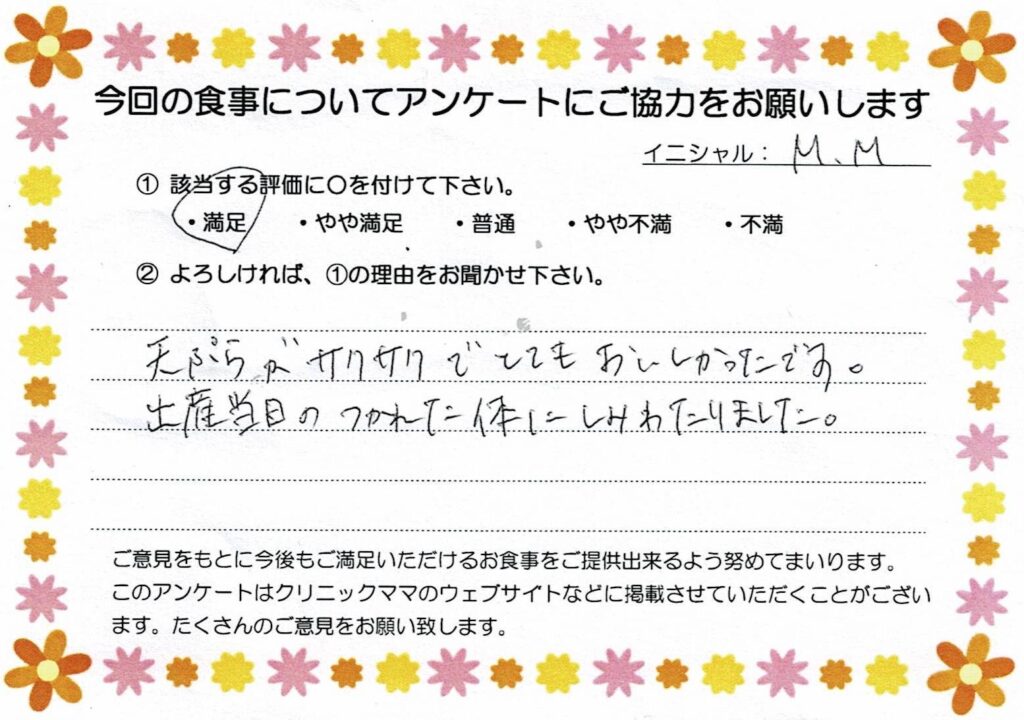 今回の食事についてアンケートにご協力をお願いします
イニシャル： M.M
① 該当する評価に〇を付けて下さい。
・満足 ・やや満足 ・普通 ・やや不満 ・不満
② よろしければ、①の理由をお聞かせ下さい。
天ぷらがサクサクでとてもおいしかったです。
出産当日のつかれた体にしみわたりました。
ご意見をもとに今後もご満足いただけるお食事をご提供出来るよう努めてまいります。
このアンケートはクリニックママのウェブサイトなどに掲載させていただくことがござい
ます。たくさんのご意見をお願い致します。